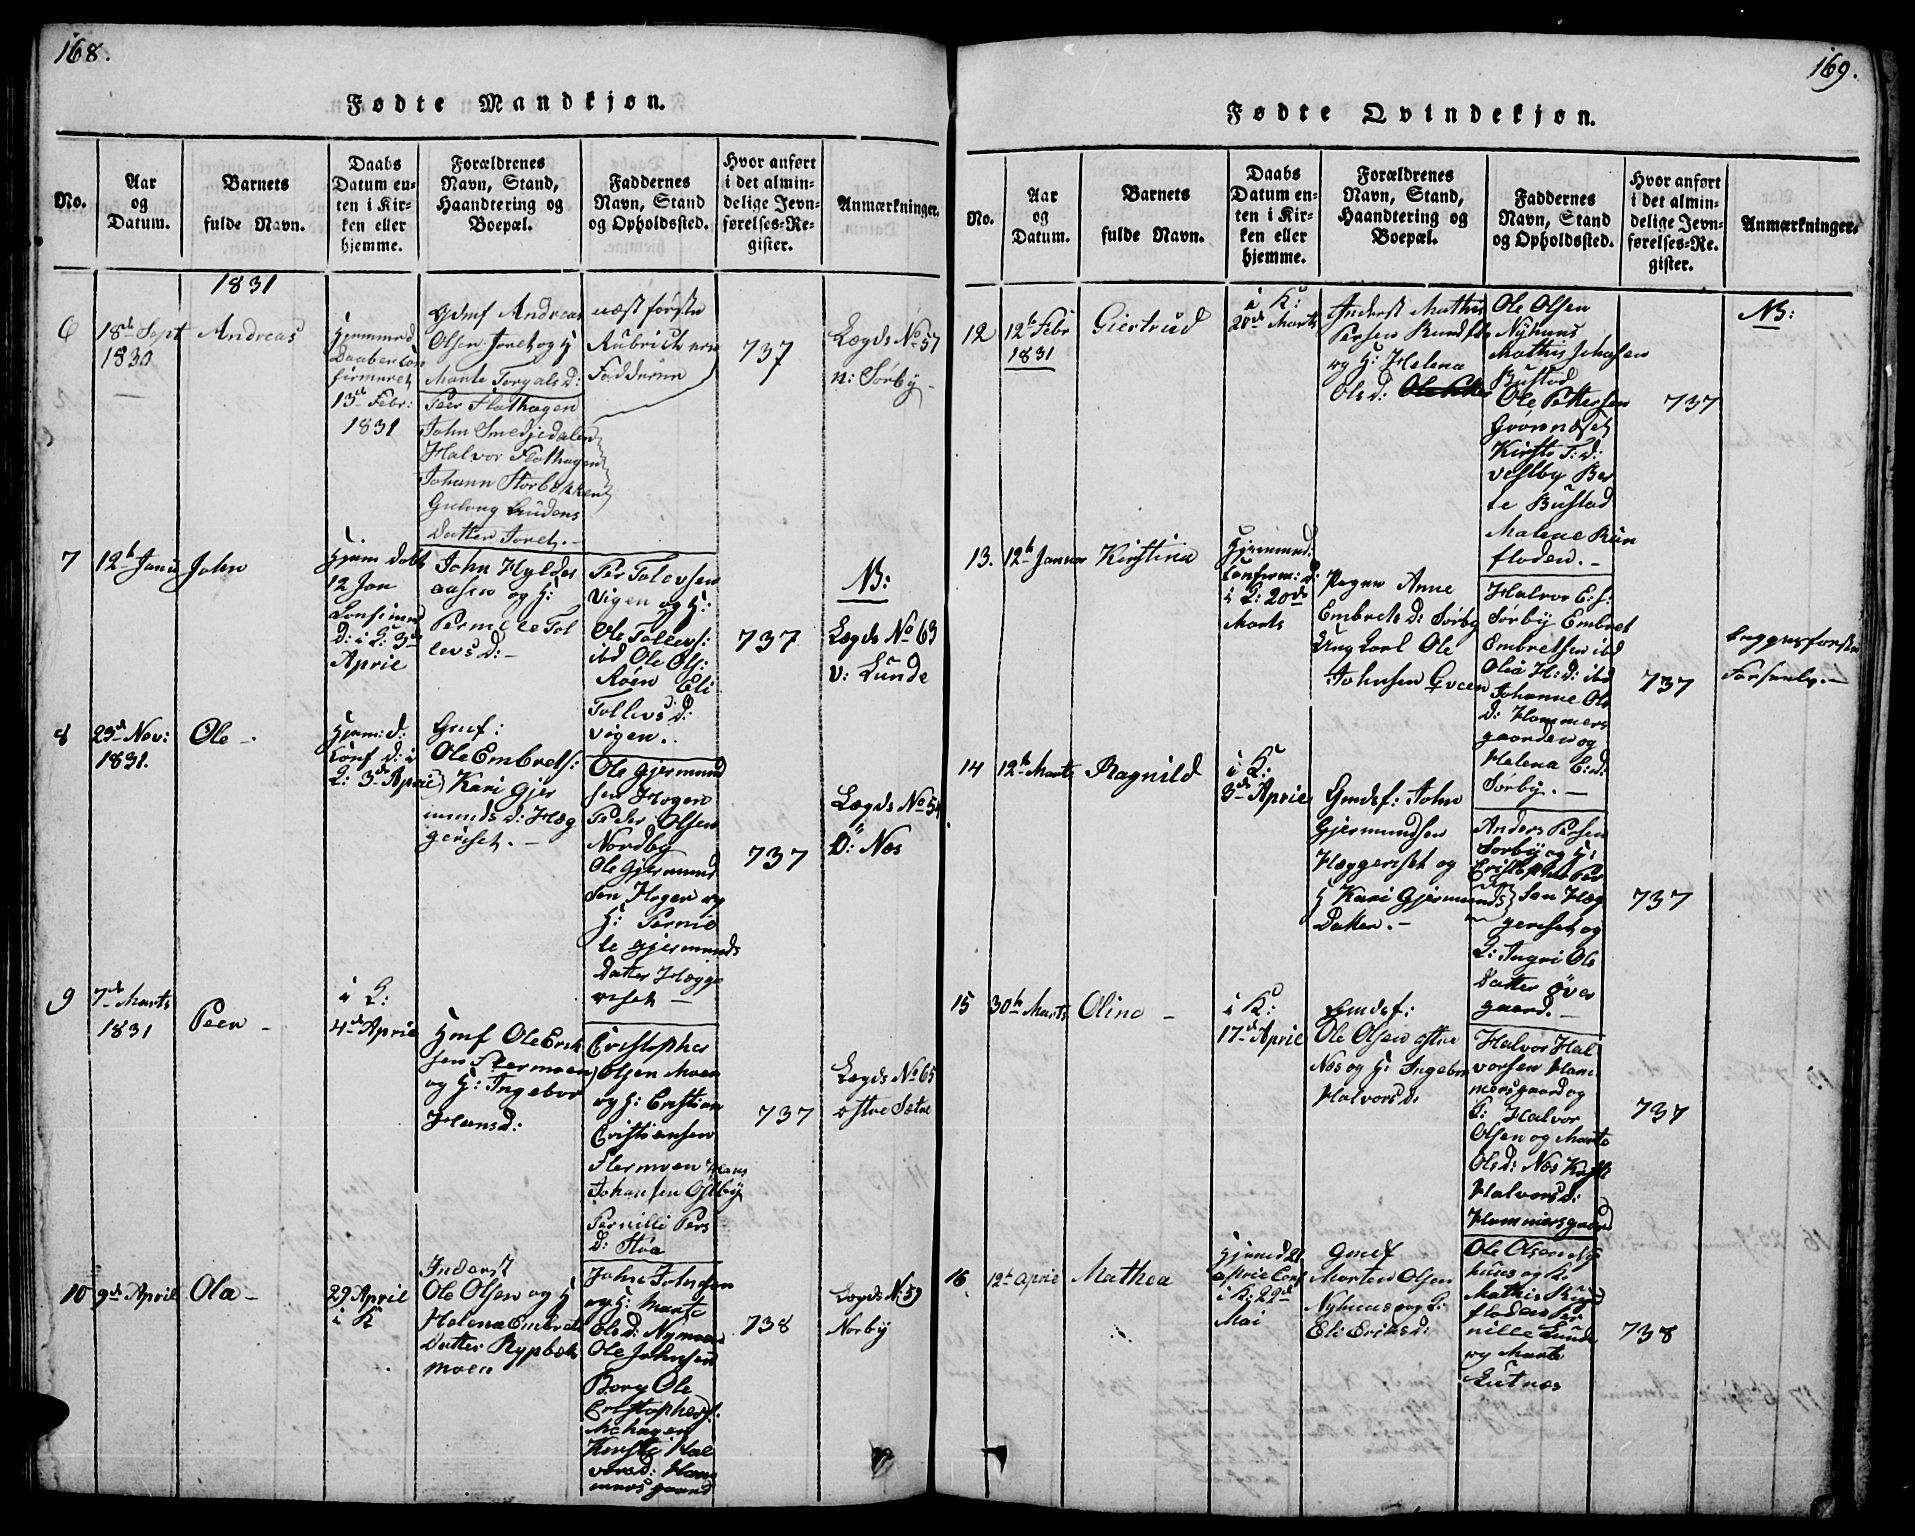 168.
Fødte Mandkjøn.
No.
Aar
og
Datum.
Barnets
fulde Navn.
Daabs
Datum en-
ten i Kir-
ken eller
hjemme.
Forældrenes
Navn, Stand,
Haandtering og
Boepæl.
Faddernes
Navn, Stand
og Opholdssted.
Hvor anført
i det almin-
delige Jevn-
førelses-Re-
gister.
Anmærkninger.
1831
6
18de Sept
1830
Andreas
Hjemmed
Daaben Con
firmeret
13de Febr:
1831
Gdmf Andreas
Olsen Joret og H
Marte Torgalsd:
næst første
Rubrick
Fadderne
Peer Flathagen
John Smedjedalen
Halvor Flathagen
Johann Storbekken
Gulong
Datter Joret.
737
Lægds No 57
n: Sørby
7
12te Janu
John
Hjem Dobt
12 Jan
d: i K: 3de
April
John Hyldes
aasen og H:
Pernille Tol
levsd:
Per Tolevsen
Vigen og H:
Ole Tollevs:
ibd Ole Ols:
Roen Eli
Tollevsd:
vigen.
737
NB:
Lægds No 63
v: Lunde
8
23de Nov:
1831.
Ole
Hjem: d:
Conf d: i
K: 3de April
Gmf:
Ole Embrets:
Kari Gjer
mundsd: Hæg
geriset.
Ole Gjermund
sen Hogen
Peder Olsen
Nordby
Ole Gjermund
sen Hogen og
H: Pernil
le Gjermunds
Datter Hægge
riset
737
Lægds No 54
Ö: Næs
9
7de Marts
1831
Peer
i K:
4de April
Hmf Ole Erik
sen Stermoen
og H: Ingebor
Hansd:
Cristopher
Olsen Moen
og H: Cristian
Cristiansen
Stermoen Hans
Johansen Ostby
Pernille Pers
D: Stöa
737
Lægds No 65
østre Sætre
10
9de April
Ola
29 April
i K
Inderst
Ole Olsen og H
Helena Embrets
Datter Rypbæk
moen
John Johnsen
og H: Marte
Olsd: Nymoen
Ole Johnsen
Borg Ole
Cristophers.
Mehagen
Kirsti Hal
vorsd: Ham
mersgaard
738
Lægds No: 59
Norby
169.
Fødte Qvindekjøn.
No.
Aar
og
Datum.
Barnets
fulde Navn.
Daabs
Datum en-
ten i Kir-
ken eller
hjemme.
Forældrenes
Navn, Stand,
Haandtering og
Boepæl.
Faddernes
Navn, Stand
og Opholdssted.
Hvor anført
i det almin-
delige Jevn-
førelses-Re-
gister.
Anmærkninger.
12
12te Febr
1831
Giertrud
i K:
20de Marts
Inderst Mathis
Persen Rundflo
og H: Helena
Olsd:
Ole Olsen
Nyhuus
Mathis Johnsen
Bustad
Ole Pettersen
Grønnæset
Kirste T: d:
vestby Ber
te Bustad
Malene Run
floden.
737
NB:
13.
12te Januar
Kirstina
Hjemmed:
Confirm: d:
i K: 20de
Marts
Pogen Anne
Embretsd: Sørby
Ung Karl Ole
Johnsen Qveen
Halvor E: s:
Sørby Embret
Embretsen ibd
Olia H: d: ibd
Johanne Ols
d: Hommers
gaarden og
Helena E: d:
Sørby.
737
begges første
Forseelse.
14
12te Marts
Ragnild
i K:
3de April
Gmdsf: John
Gjermundsen
Hæggeriset og
H Kari Gjermunds
Datter.
Anders Persen
Sorby og H:
Cristopher Per
sen Hæg
geriset og
K: Ingri Ols
datter över
gaard.
737
15
30te Marts
Olina
i K:
17de April
Gmdsf:
Ole Olsen østre
Næs og H: Ingebor
Halvorsd:
Halvor Hal
vorsen Ham
mersgaard og
K: Halvor
Olsen og Marte
Olsd: Næs Kirsti
Halvorsd:
Hammersgaard
737
16
12te April
Mathea
Hjemmed 21
April Conf
i K: 22de
Mai
Gmdf
Morten Olsen
Nyhuus og K:
Eli Eriksd:
Ole Olsen Ny
huus og K:
Mathis Rund
floden Per
nille Lunde
og Marte
Lutnæs
738